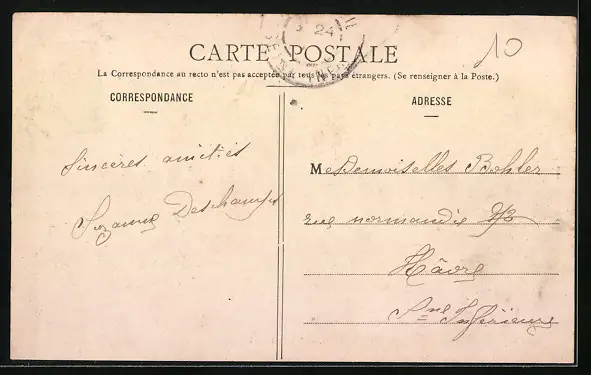 24
10
CARTE POSTALE
La Correspondance au recto n'est pas acceptée par tous les pays étrangers. (Se renseigner à la Poste.)
CORRESPONDANCE
ADRESSE
Sincères amitiés
Suzanne Deschamps
Mesdemoiselles Bohler
rue normandie
Hâvre
Sne Inférieure